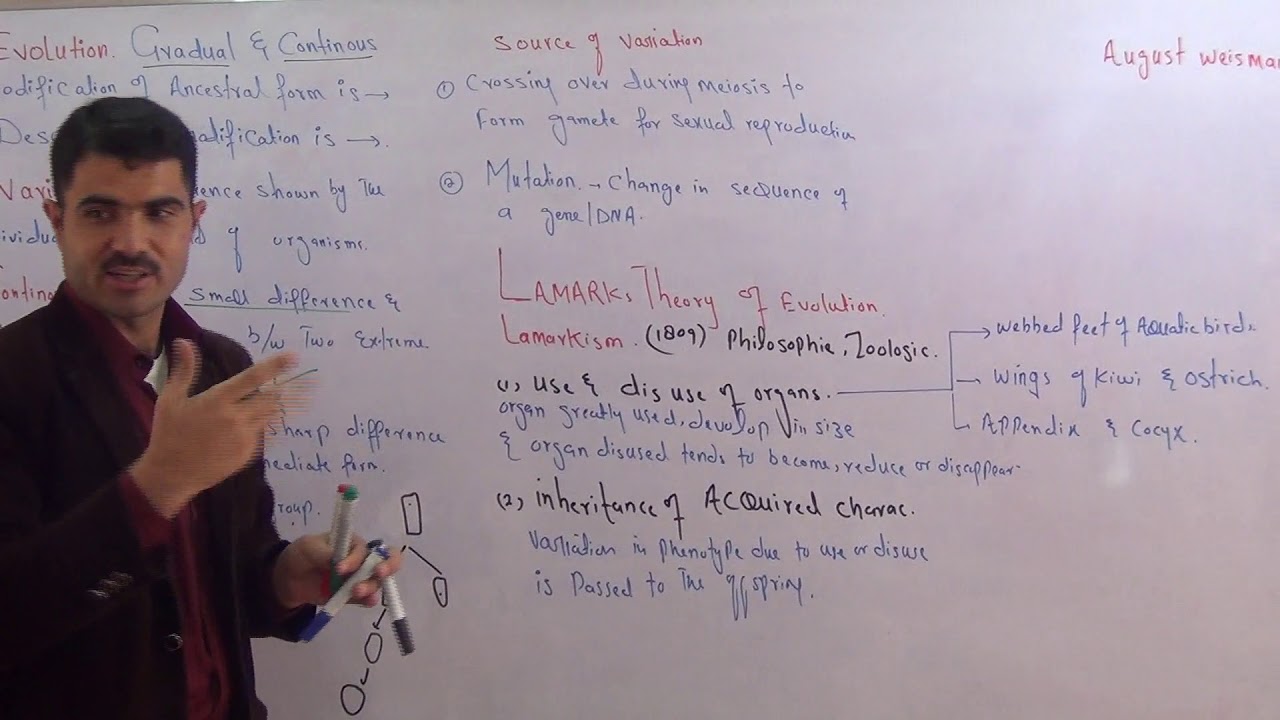 Evolution. Gradual & Continous
odification of Ancestral form is →
Des odification is →.
Vari ence shown by The
ividu d of organisms.
Contin small difference &
b/w Two Extreme.
sharp difference
mediate form.
roup.
Source of variation
① Crossing over during meiosis to
Form gamete for sexual reproduction
② Mutation. → Change in sequence of
a gene/DNA.
LAMARK,s Theory of Evolution.
Lamarkism. (1809) Philosophie, Zoologic.
(1), use & disuse of organs.
organ greatly used, develop in size
& organ disused tends to become, reduce or disappear.
(2), inheritance of Acquired charac.
variation in phenotype due to use or disuse
is Passed to The offspring.
webbed feet of Aquatic birds
wings of kiwi & ostrich.
Appendix & Cocyx.
August weisman